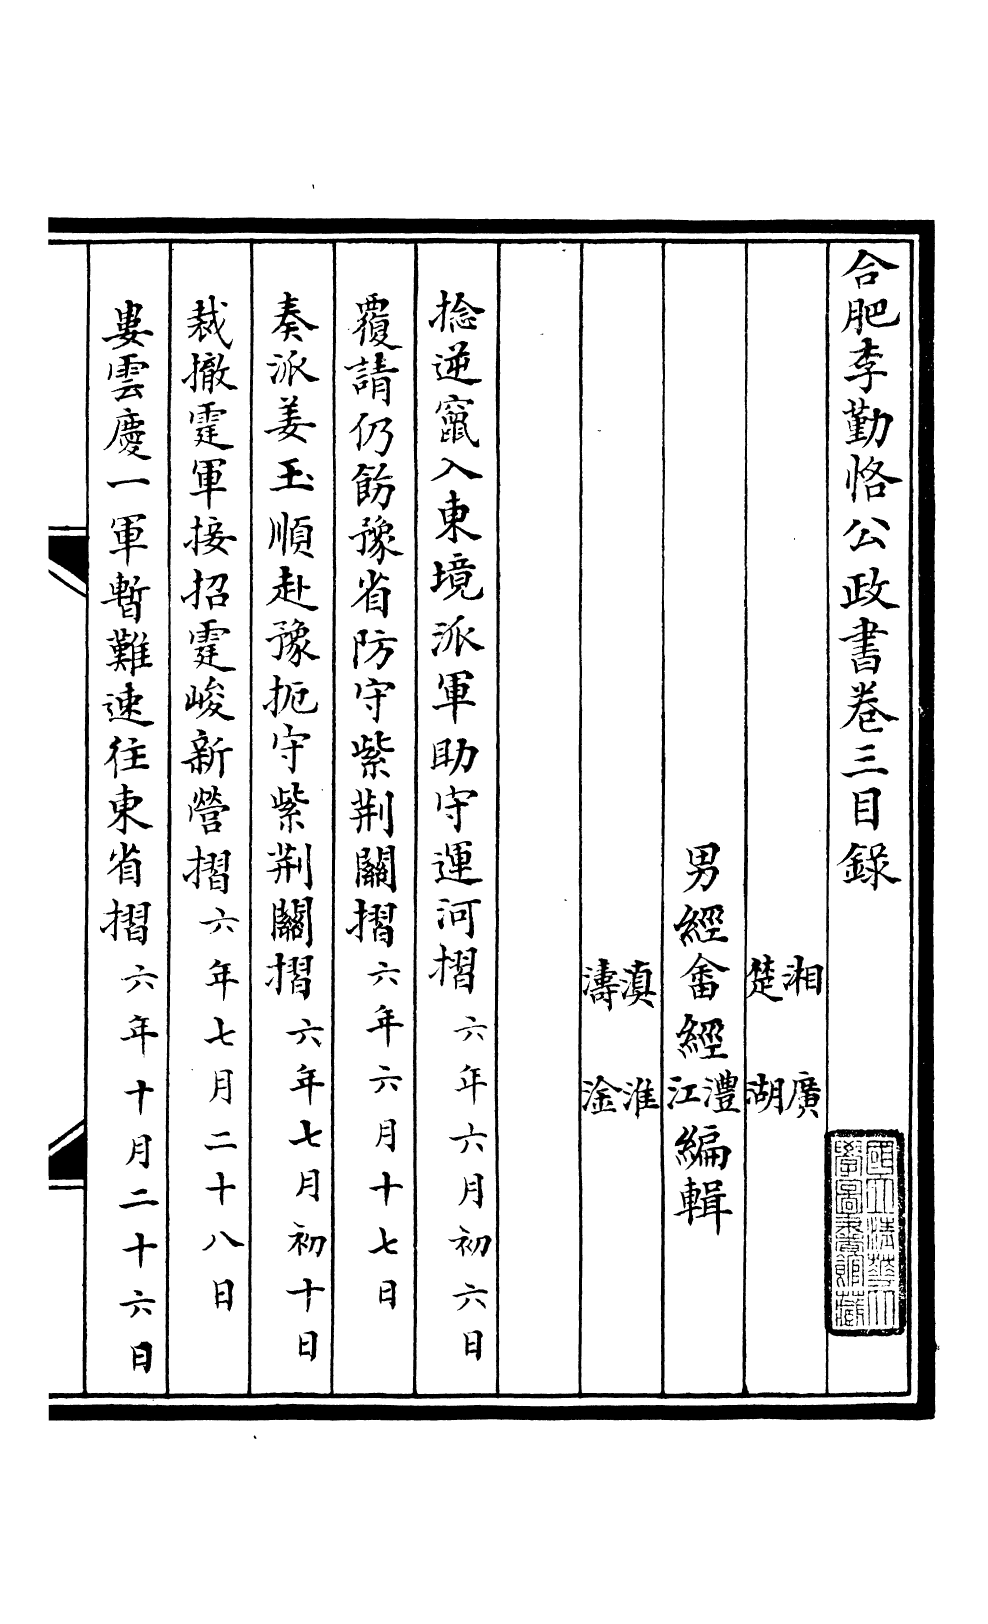 合肥李勤恪公政書卷三目錄
國立清華大
學圖書館藏
湘 廣
楚 湖
男經畬經澧江編輯
滇 淮
濤 淦
捻逆竄入東境派軍助守運河摺六年六月初六日
覆請仍飭豫省防守紫荆關摺六年六月十七日
奏派姜玉順赴豫扼守紫荆關摺六年七月初十日
裁撤霆軍接招霆峻新營摺六年七月二十八日
婁雲慶一軍暫難速往東省摺六年十月二十六日